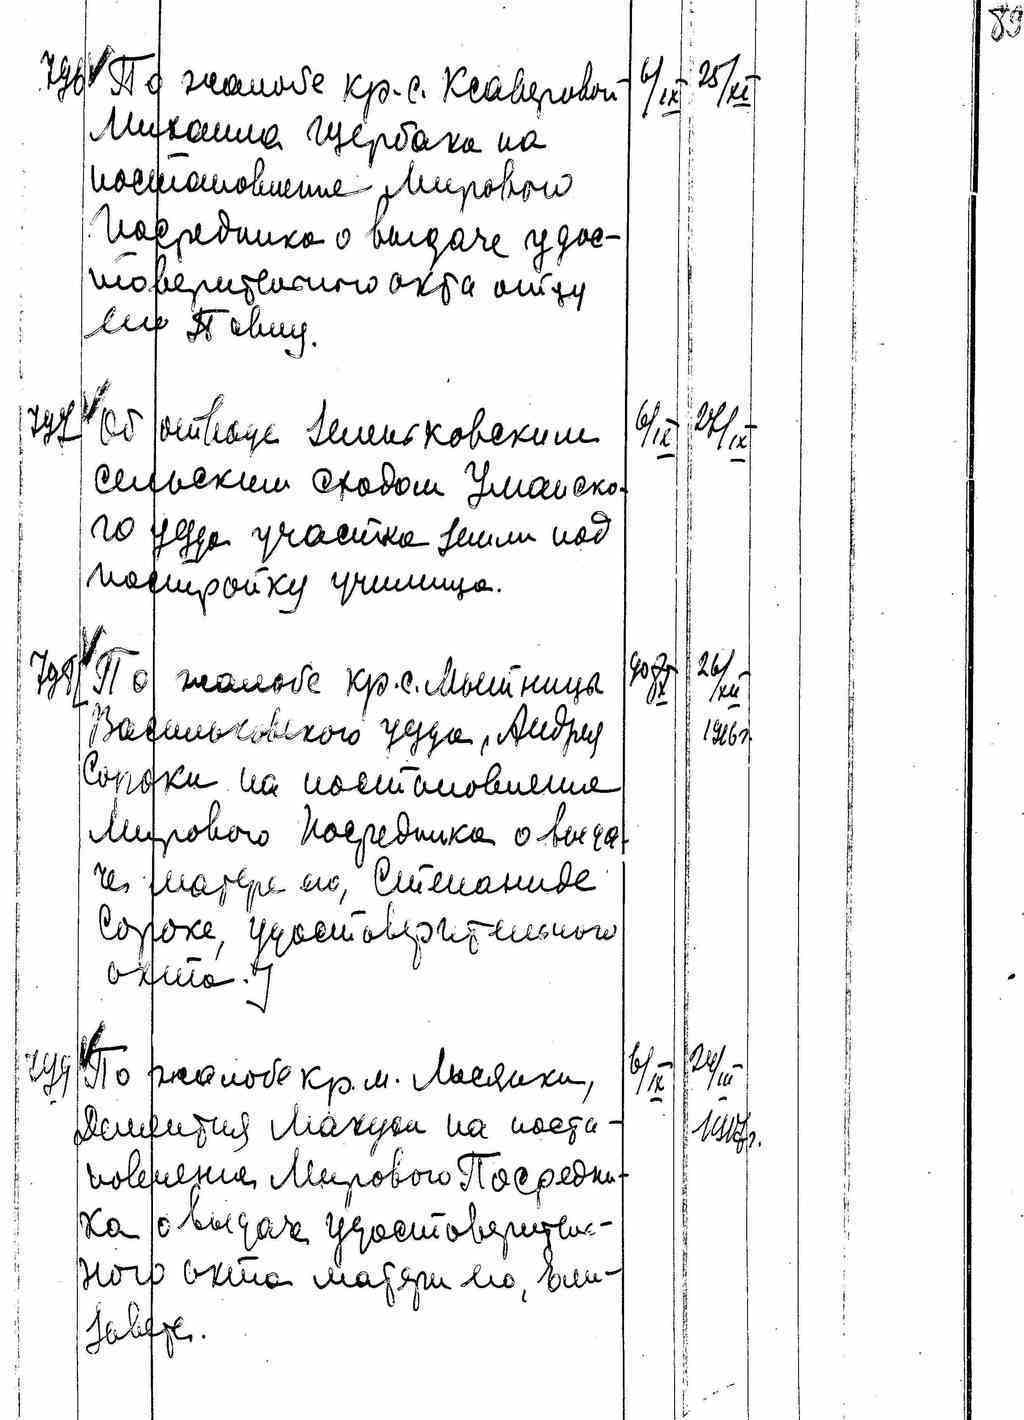 89
796 По жалобе кр. с. Ксаверовой 6/IX 25/XI
Михаила Щербака на
постановление Мирового
Посредника о выдаче удос-
товерительного акта отцу
его Павлу.
797 Об отводе Зеленьковским 6/IX 27/IX
сельским сходом Уманско-
го уезда участка земли под
постройку училища.
798 [По жалобе кр. с. Мытницы 26/XII
Васильковского уезда, Андрея 1906 г.
Сороки на постановление
Мирового Посредника о выда-
че матери его, Степаниде
Сороке, удостоверительного
акта.]
799 По жалобе кр. м. Лысянки, 6/IX 24/III
Дементия на поста- 1907 г.
новление Мирового Посредни-
ка о выдаче удостоверитель-
ного акта матери его, Ели-
завете.